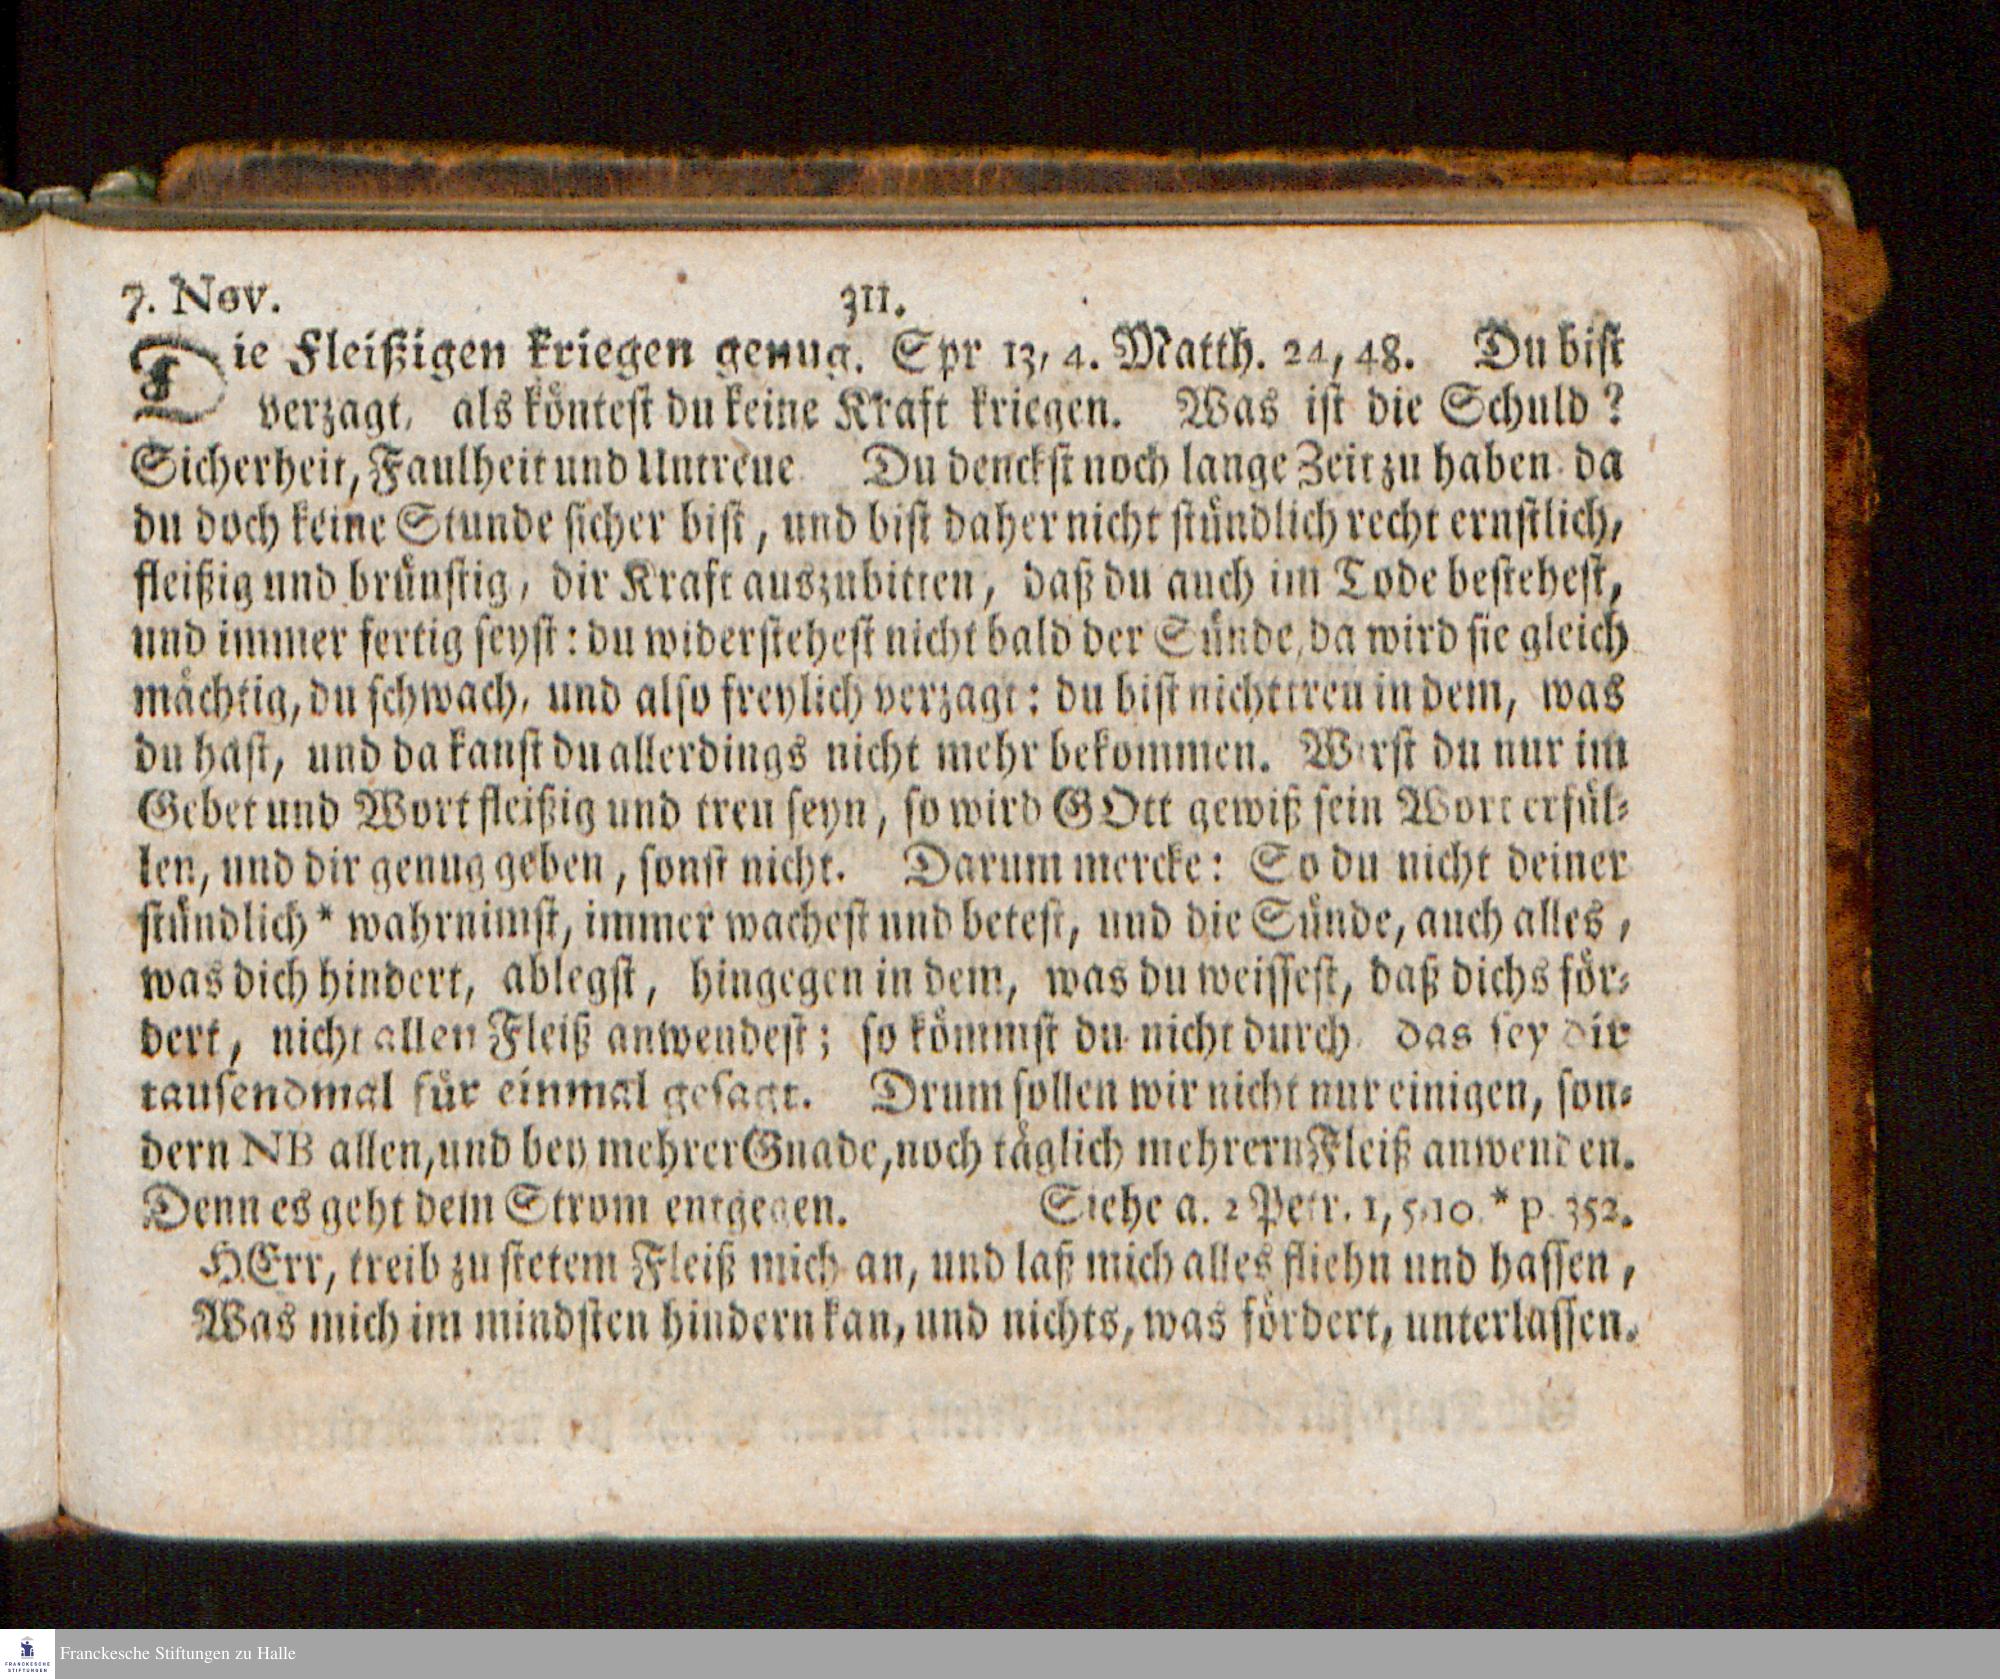 7. Nov. 311.
Die Fleißigen kriegen genug. Spr 13, 4. Matth. 24, 48. Du bist
verzagt, als köntest du keine Kraft kriegen. Was ist die Schuld?
Sicherheit, Faulheit und Untreue Du denckst noch lange Zeit zu haben da
du doch keine Stunde sicher bist, und bist daher nicht stündlich recht ernstlich,
fleißig und brünstig, dir Kraft auszubitten, daß du auch im Tode bestehest,
und immer fertig seyst: du widerstehest nicht bald der Sünde, da wird sie gleich
mächtig, du schwach, und also freylich verzagt: du bist nicht treu in dem, was
du hast, und da kanst du allerdings nicht mehr bekommen. Wirst du nur im
Gebet und Wort fleißig und treu seyn, so wird GOtt gewiß sein Wort erfül-
len, und dir genug geben, sonst nicht. Darum mercke: So du nicht deiner
stündlich* wahrnimst, immer wachest und betest, und die Sünde, auch alles,
was dich hindert, ablegst, hingegen in dem, was du weissest, daß dichs för-
dert, nicht allen Fleiß anwendest; so kömmst du nicht durch. das sey dir
tausendmal für einmal gesagt. Drum sollen wir nicht nur einigen, son-
dern NB allen, und bey mehrer Gnade, noch täglich mehrern Fleiß anwenden.
Denn es geht dem Strom entgegen. Siehe a. 2 Petr. 1, 5.10. * p. 352.
HErr, treib zu stetem Fleiß mich an, und laß mich alles fliehn und hassen,
Was mich im mindsten hindern kan, und nichts, was fördert, unterlassen.
FRANCKESCHE
STIFTUNGEN
Franckesche Stiftungen zu Halle